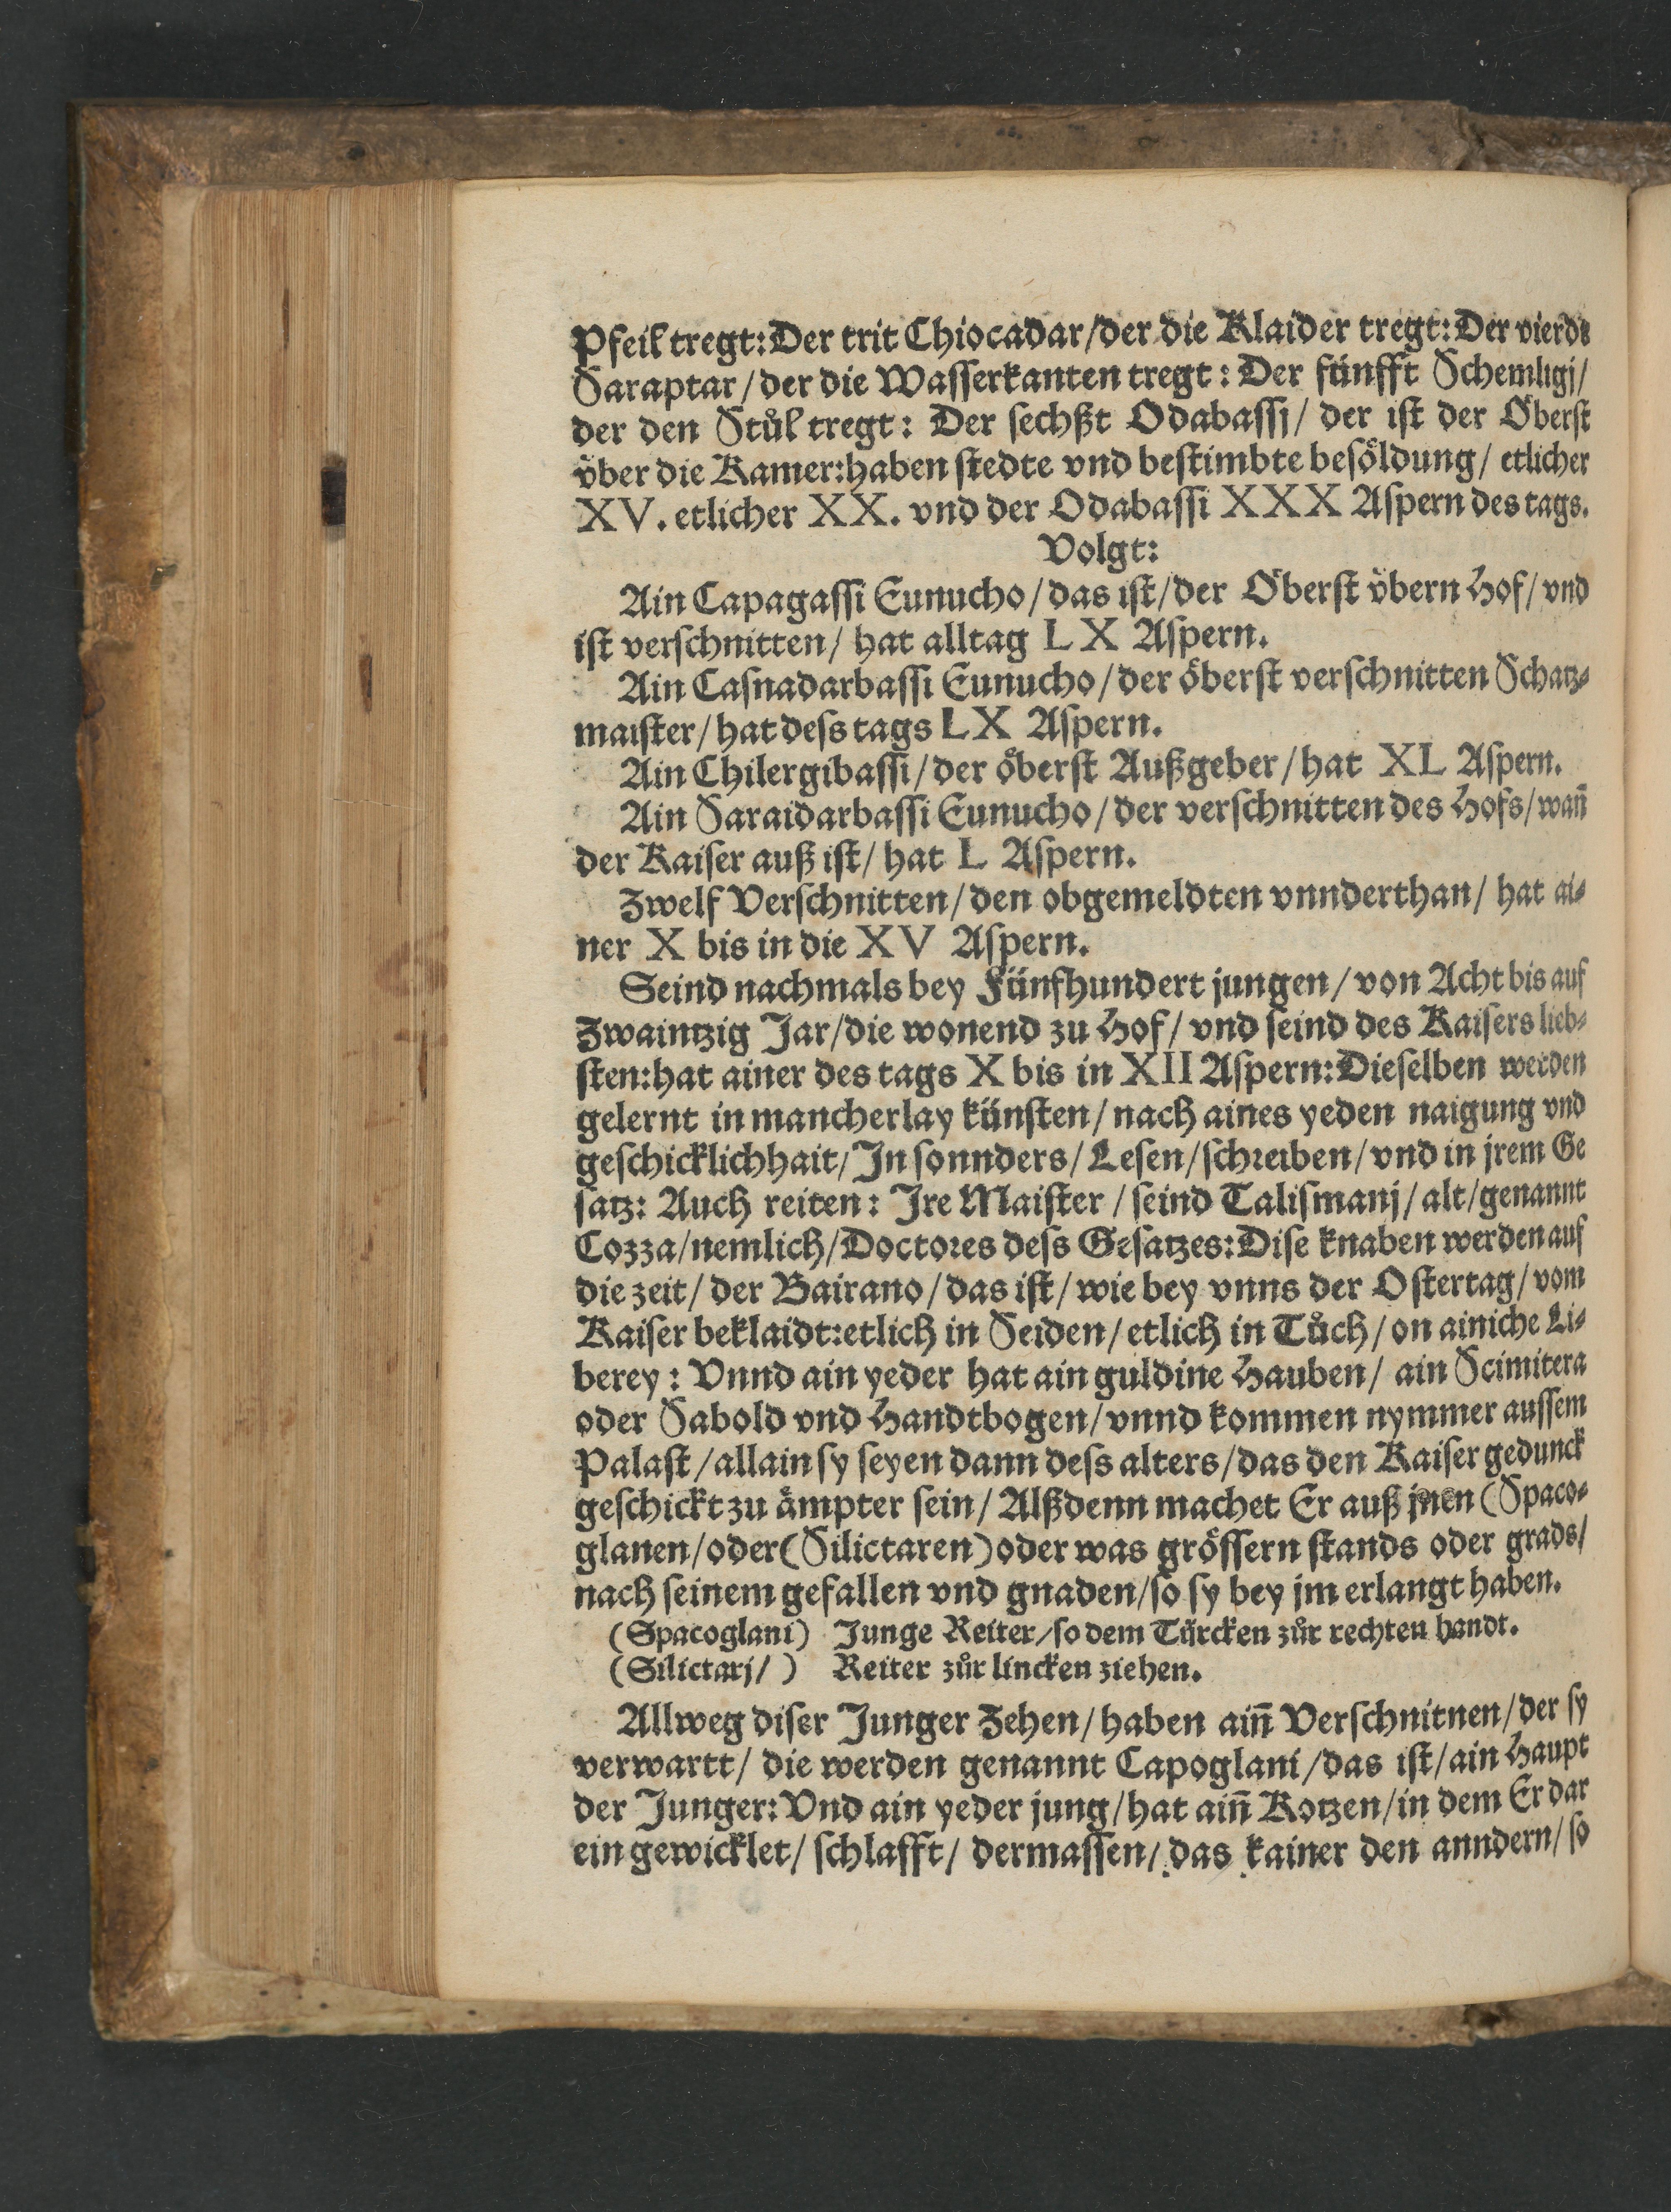 Pfeil tregt: Der trit Chiocadar/der die Klaider tregt: Der vierdt
Saraptar/der die Wasserkanten tregt: Der fünfft Schemligj/
der den Stůl tregt: Der sechßt Odabassj/ der ist der Öberst
vͤber die Kamer: haben stedte vnd bestimbte besöldung/ etlicher
XV. etlicher XX. vnd der Odabassi XXX Aspern des tags.
Volgt:
Ain Capagassi Eunucho/das ist/der Öberst vͤbern Hof/vnd
ist verschnitten/ hat alltag LX Aspern.
Ain Casnadarbassi Eunucho/der öberst verschnitten Schatz⸗
maister/hat dess tags LX Aspern.
Ain Chilergibassi/der öberst Außgeber/hat XL Aspern.
Ain Saraidarbassi Eunucho/der verschnitten des Hofs/wañ
der Kaiser auß ist/ hat L Aspern.
Zwelf Verschnitten/den obgemeldten vnnderthan/ hat ai⸗
ner X bis in die XV Aspern.
Seind nachmals bey Fünfhundert jungen/von Acht bis auf
Zwaintzig Jar/die wonend zu Hof/ vnd seind des Kaisers lieb⸗
sten: hat ainer des tags X bis in XII Aspern: Dieselben werden
gelernt in mancherlay künsten/nach aines yeden naigung vnd
geschicklichhait/In sonnders/Lesen/schreiben/vnd in jrem Ge
satz: Auch reiten: Ire Maister/seind Talismanj/alt/genannt
Cozza/nemlich/Doctores dess Gesatzes: Dise knaben werden auf
die zeit/der Bairano/das ist/wie bey vnns der Ostertag/vom
Kaiser beklaidt: etlich in Seiden/etlich in Tůch/on ainiche Li⸗
berey: Vnnd ain yeder hat ain guldine Hauben/ ain Scimitera
oder Sabold vnd Handtbogen/vnnd kommen nymmer aussem
Palast/allain sy seyen dann dess alters/das den Kaiser gedunck
geschickt zu ämpter sein/ Alßdenn machet Er auß jnen (Spaco⸗
glanen/oder (Silictaren) oder was grössern stands oder grads/
nach seinem gefallen vnd gnaden/so sy bey jm erlangt haben.
(Spacoglani) Junge Reiter/so dem Türcken zůr rechten handt.
(Silictarj/) Reiter zůr lincken ziehen.
Allweg diser Junger Zehen/haben aiñ Verschnitnen/der sy
verwartt/ die werden genannt Capoglani/das ist/ain Haupt
der Junger: Vnd ain yeder jung/hat aiñ Kotzen/in dem Er dar
ein gewicklet/ schlafft/ dermassen/das kainer den anndern/so